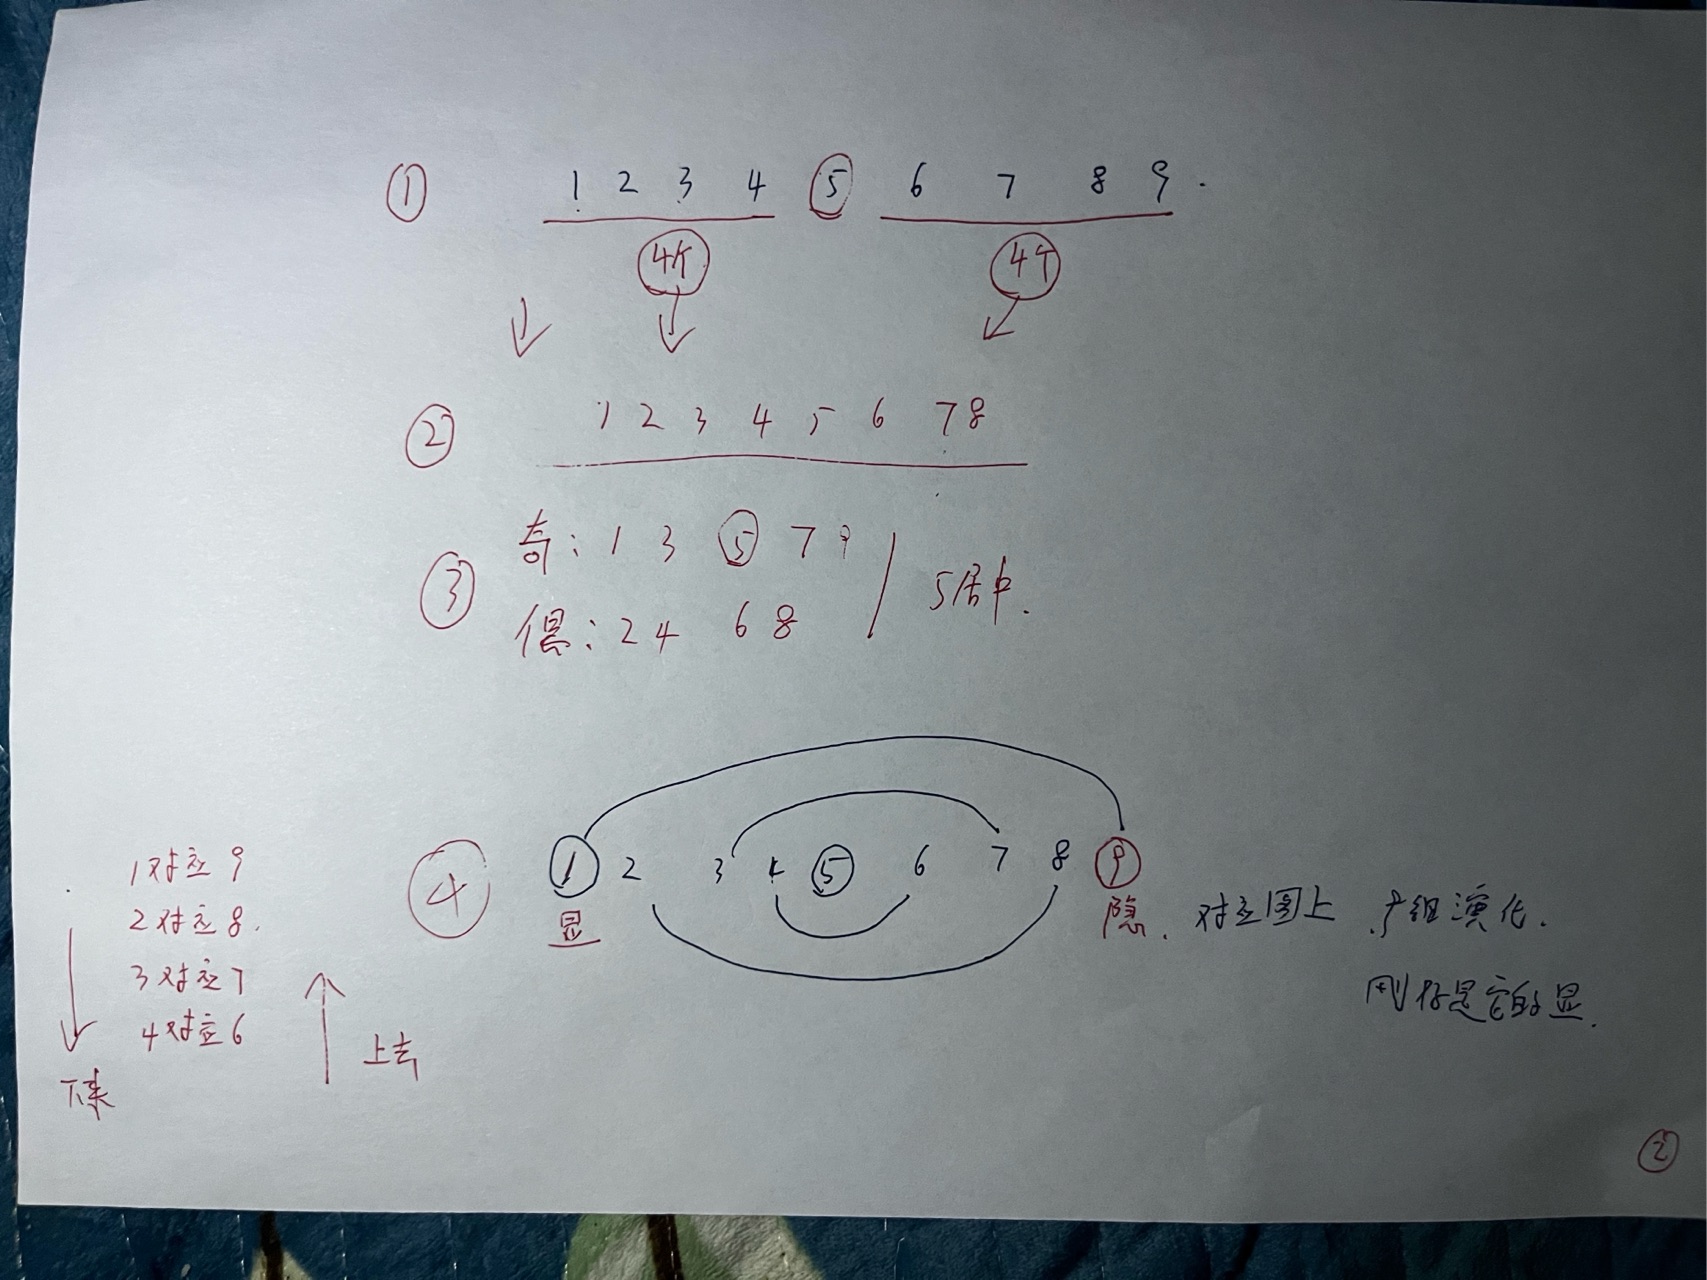 ① 1 2 3 4 ⑤ 6 7 8 9 .
4个 4个
② 1 2 3 4 5 6 7 8
③ 奇: 1 3 ⑤ 7 9
偶: 2 4 6 8
5居中.
④ ① 2 3 4 ⑤ 6 7 8 ⑨
显 隐. 对应图上
演化.
刚好是它的显.
1对应9
2对应8.
3对应7
4对应6
下来
上去
②